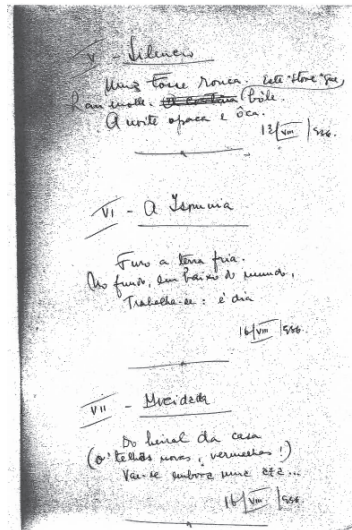 V - Silencio
Uma tosse rouca. Este store que,
Lam molle. bóle.
A noite opaca e ôca.
12/VIII/936.
VI - A Insomnia
Furo a terra fria.
No fundo, em baixo do mundo,
Trabalha-se: é dia
16/VIII/936.
VII - Mocidade
Do beiral da casa
(ó telhas novas, vermelhas!)
Vai-se embora uma aza...
16/VIII/936